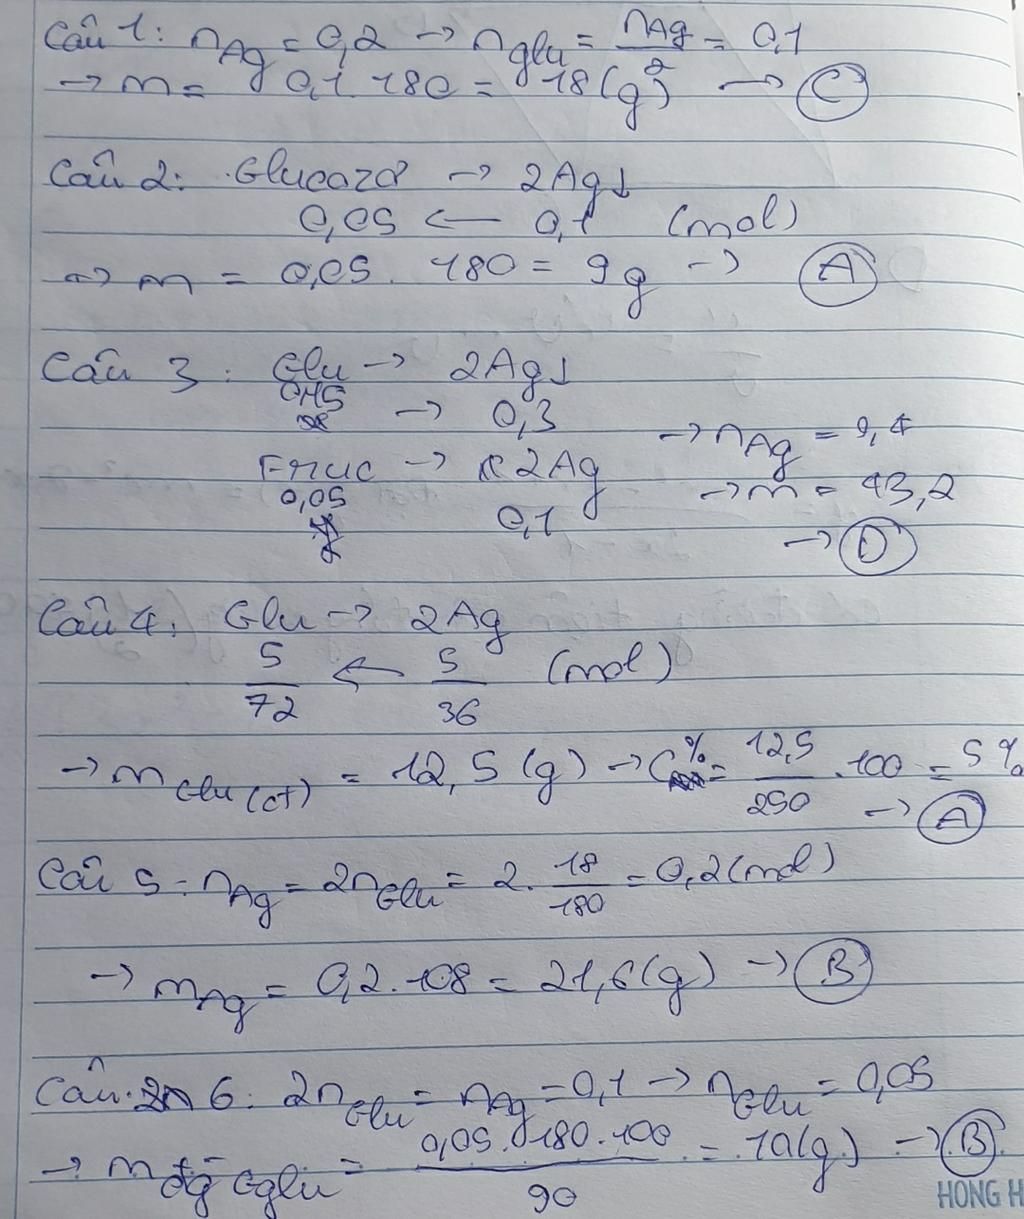 Câu 1: nAg = 0,2 → nglu = nAg/2 = 0,1
→ m = 0,1. 180 = 18(g) → C
Câu 2: Glucozơ → 2Ag↓
0,05 ← 0,1 (mol)
→ m = 0,05. 180 = 9g → A
Câu 3: Glu → 2Ag↓
0,15 → 0,3
→ nAg = 0,4
Fruc → 2Ag
→ m = 43,2
0,05 0,1
→ D
Câu 4: Glu → 2Ag
5/72 ← 5/36 (mol)
→ mGlu(ct) = 12,5 (g) → C% = 12,5/250 .100 = 5%
→ A
Câu 5: nAg = 2nGlu = 2. 18/180 = 0,2(mol)
→ mAg = 0,2.108 = 21,6(g) → B
Câu 6: 2nGlu = nAg = 0,1 → nGlu = 0,05
→ m glu = 0,05.180.100/90 = 10(g) → B
HONG H